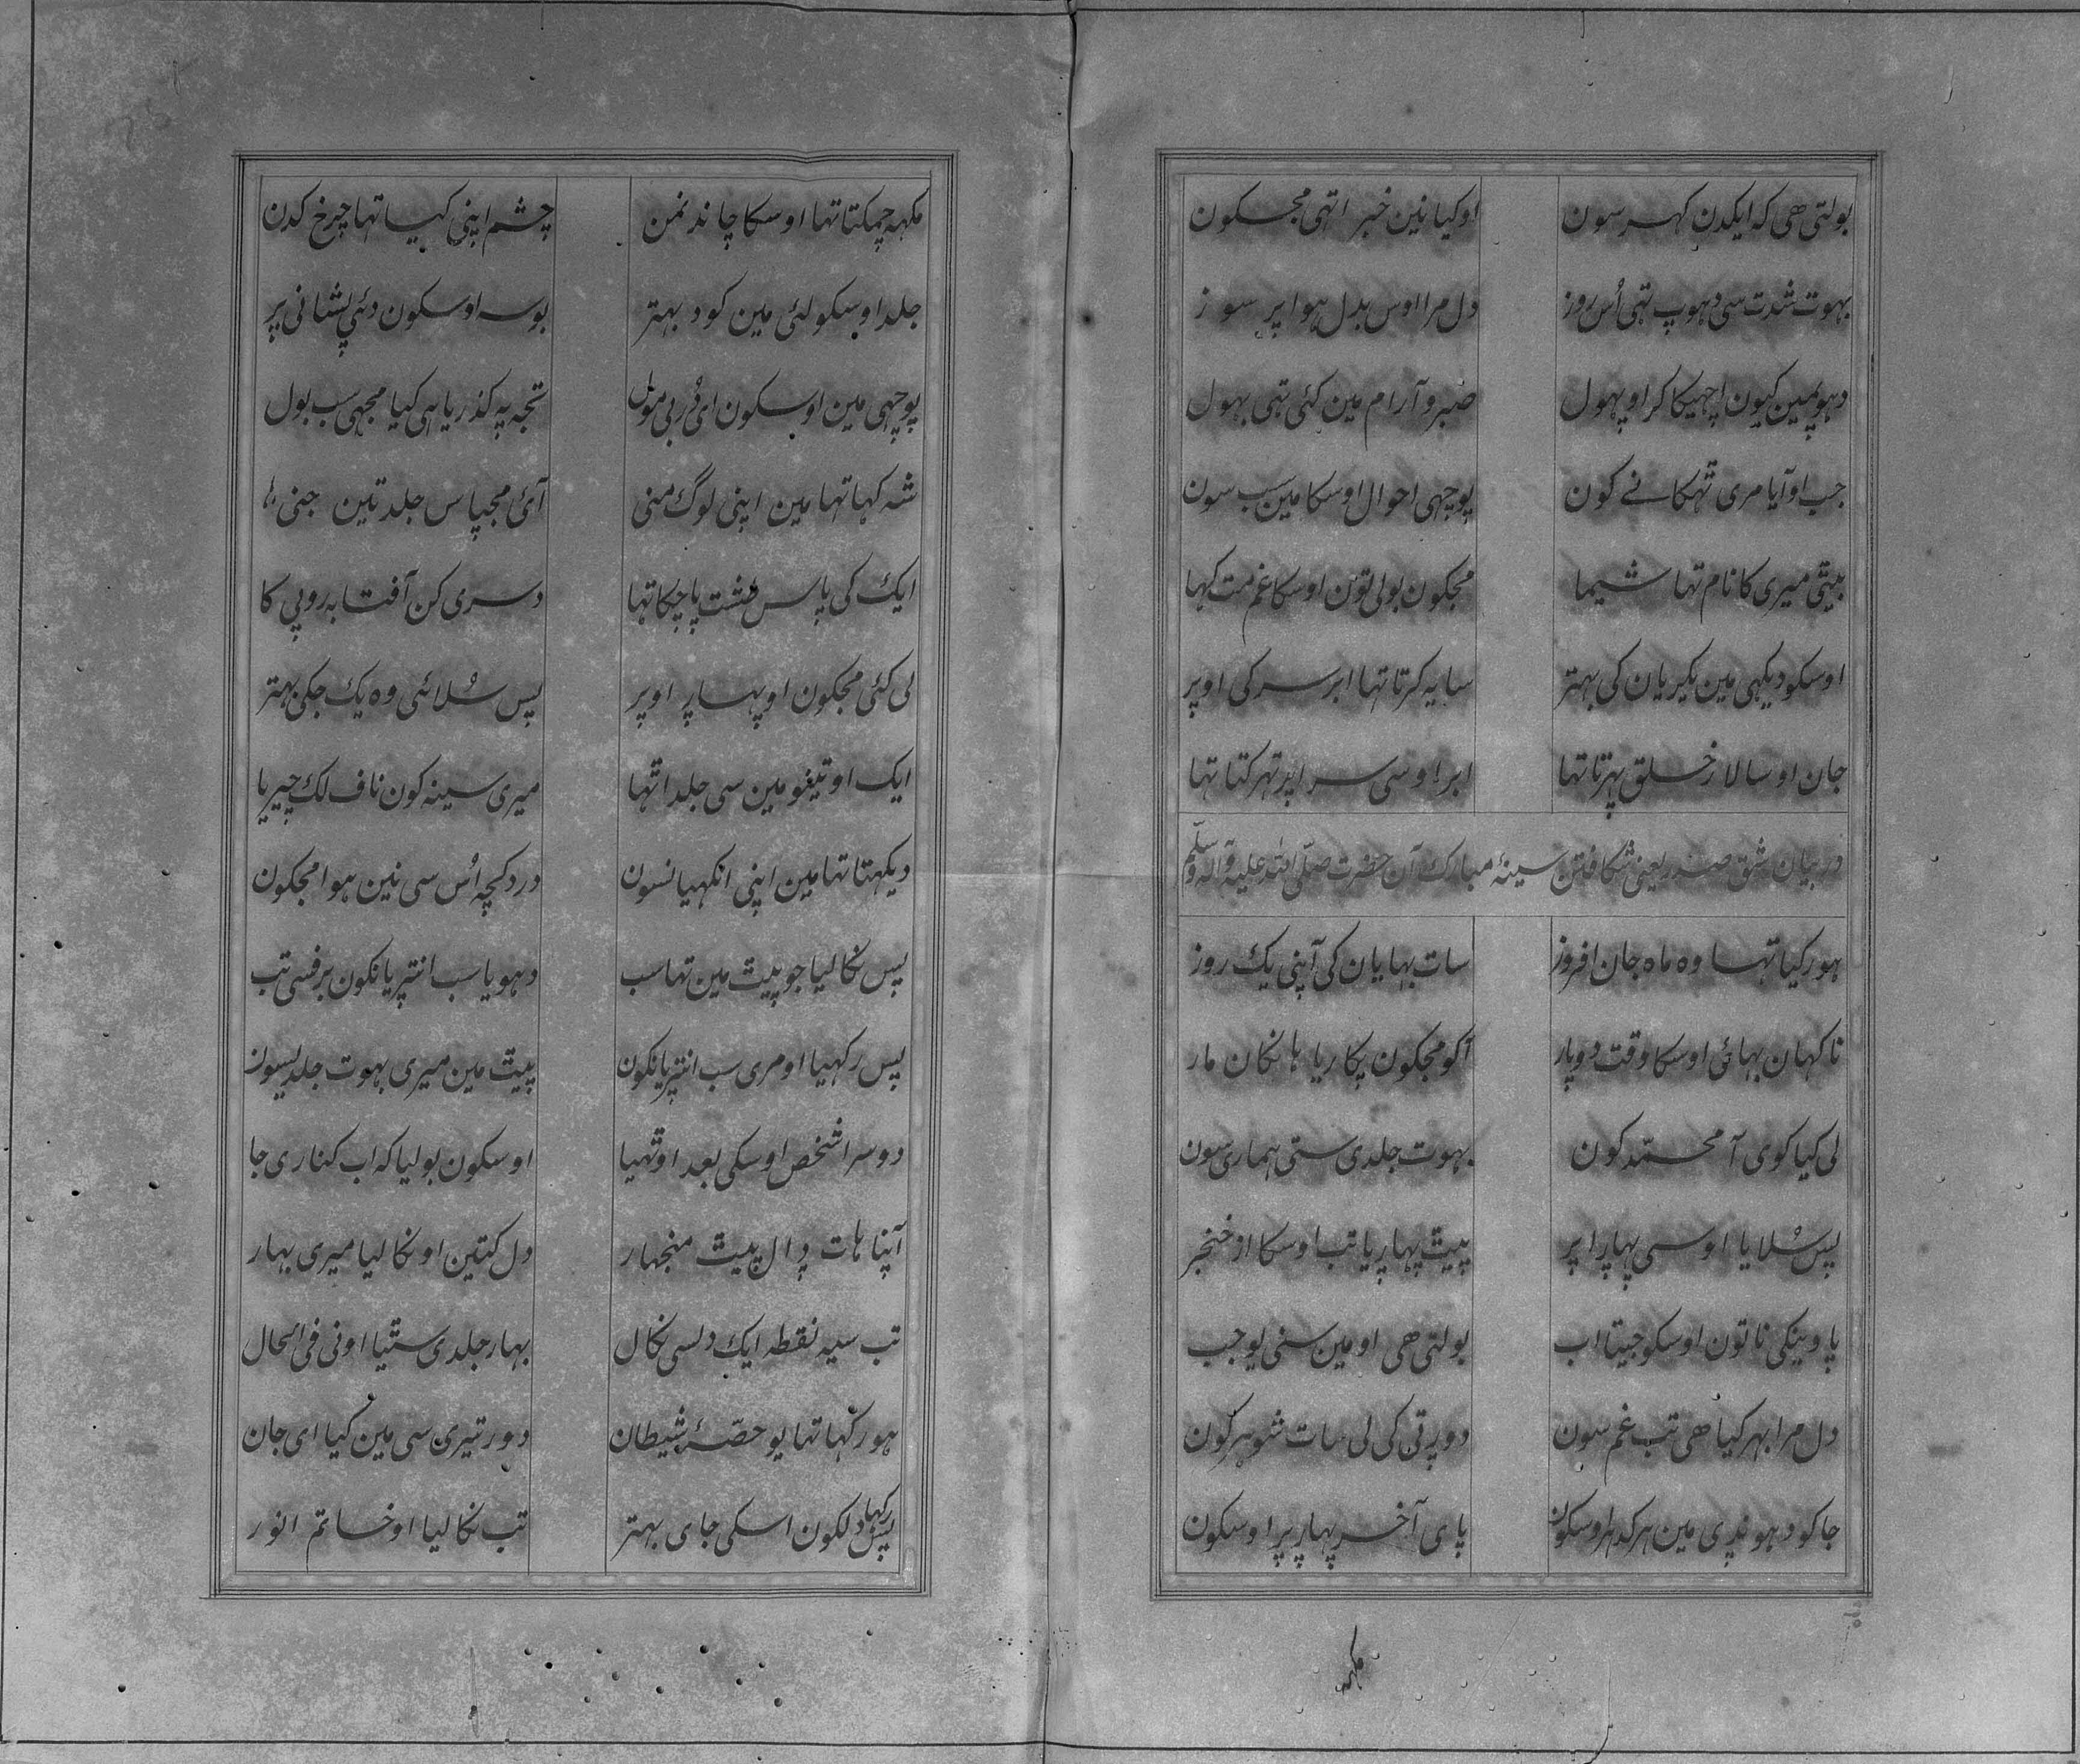 بولتی هی که ایکدن کهر سون اوکیا نین خبر اتهی مجکون
بهوت شدت سی دهوپ تهی اُس روز دل مرا اوس بدل هوا پر سوز
دهوپمین کیون اچهیکا کر او پهول صبر و آرام مین کئی تهی بهول
جب او آیا مری تهکانے کون پوچهی احوال اوسکا مین سب سون
بیتی میری کا نام تها شیما مجکون بولی تون اوسکا غم مت کها
اوسکو دیکهی مین بکریان کی بهتر سایه کرتا تها ابر سر کی اوپر
جان او سالار خلق پهرتا تها ابر اوسی سر اپر تهرکتا تها
در بیان شق صدر یعنی شکافتن سینهٔ مبارک آن حضرت صلّی الله علیه و آله وسلّم
هور کیا تها وه ماه جان افروز سات بهایان کی آپنی یک روز
ناکهان بهائی اوسکا وقت دوپار آکو مجکون پکاریا هانکان مار
لی کیا کوی آ محمّد کون بهوت جلدی ستی هماری سون
پس سُلایا اوسی پهار اپر پیت پهاریا تب اوسکا از خنجر
پاوینکی نا تون اوسکو جیتا اب بولتی هی او مین سنی یو جب
دل مرا بهر کیا هی تب غم سون دورتی کی لی سات شوهر کون
جاکو دهوندی مین هر کدهر اوسکون پای آخر پهار پر اوسکون
مکهه
مکهه چمکتا تها اوسکا چاند نمن چشم اپنی کیا تها چرخ کدن
جلد اوسکو لئی مین کود بهتر بوسه اوسکون دئی پیشانی پر
پوچهی مین اوسکون ای دُر بی مول تجه په کذریا هی کیا مجهی سب بول
شه کها تها مین اپنی لوک منی آئ مجپاس جلد تین جنی
ایک کی پاس طشت پاچکا تها دسری کن آفتابه روپی کا
لی کئی مجکون او پهار اوپر پس سُلائی وه یک جکی بهتر
ایک او تیغو مین سی جلد اتها میری سینه کون ناف لک چیریا
دیکهتا تها مین اپنی انکهیانسون درد کچه اُس سی نین هوا مجکون
پس نکالیا جو پیت مین تها سب دهویا سب انتریانکون برفسی تب
پس رکهیا او مری سب انتریانکون پیت مین میری بهوت جلدیسون
دوسرا شخص اوسکی بعد اوتهیا اوسکون بولیا که اب کناری جا
آپنا هات دال پیت منجهار دل کتین او نکالیا میری بهار
تب سیه نقطه ایک دلسی نکال بهار جلدی ستیا اونی فی الحال
هور کها تها یو حصّهٔ شیطان دور تیری سی مین کیا ای جان
پس رکها دلکون اسکی جای بهتر تب نکالیا او خاتم انور